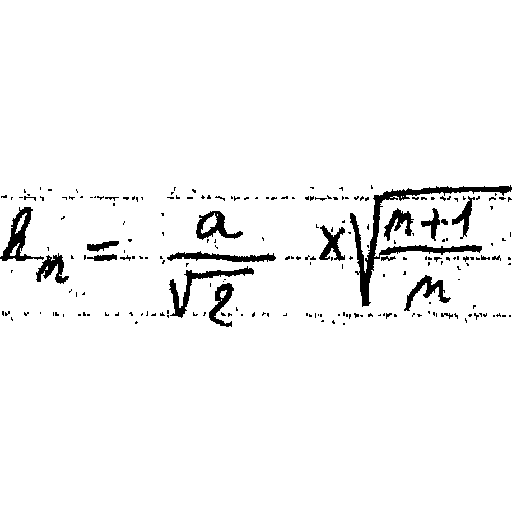 $h_n = \frac{a}{\sqrt{2}} \times \sqrt{\frac{n+1}{n}}$